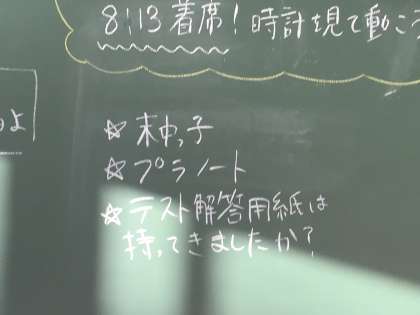 8:13 着席! 時計を見て動こう
るよ
☆ 末中っ子
☆ プラノート
☆ テスト解答用紙は
持ってきましたか?